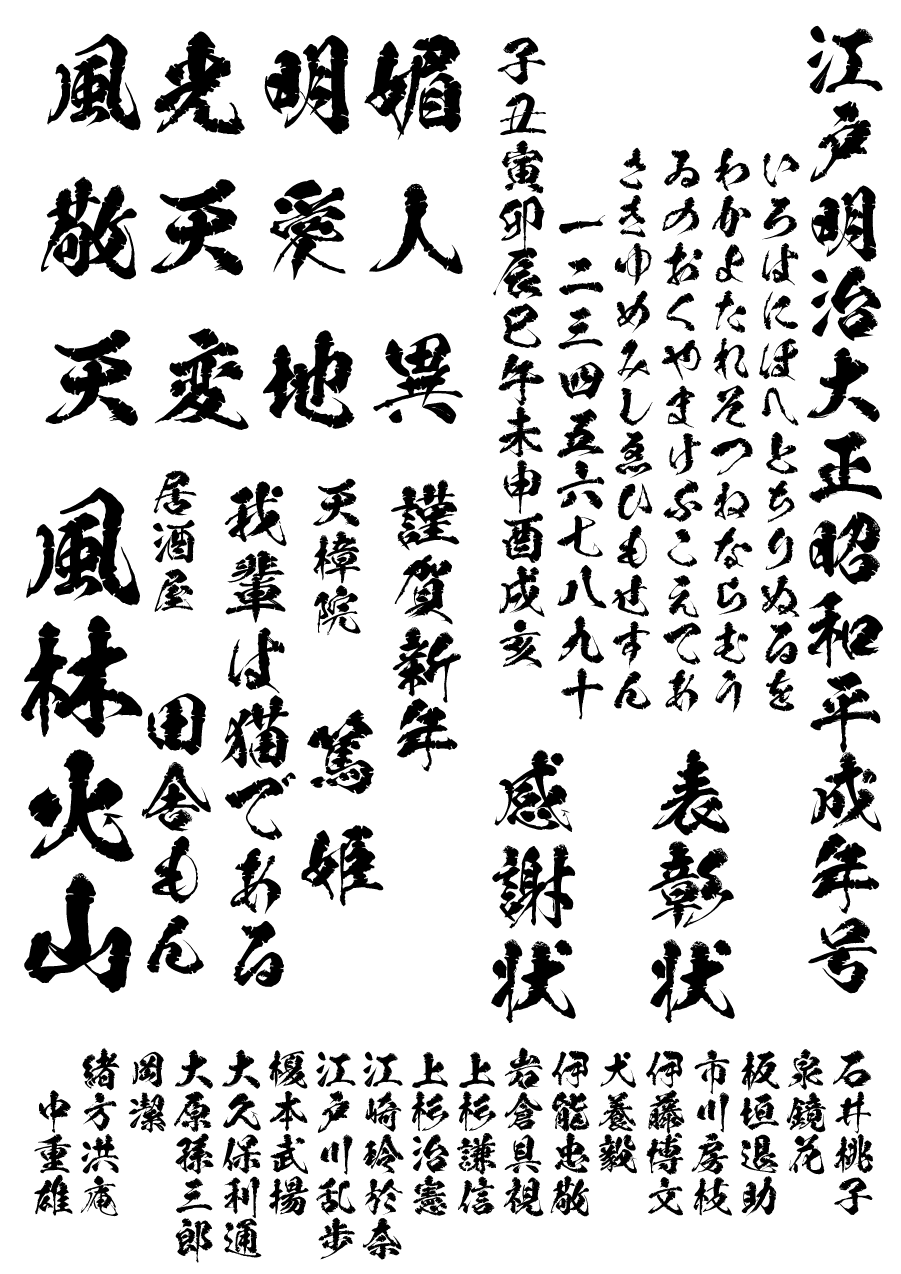 江戸明治大正昭和平成年号
いろはにほへとちりぬるを
わかよたれそつねならむう
ゐのおくやまけふこえてあ
さきゆめみしゑひもせすん
一二三四五六七八九十
子丑寅卯辰巳午未申酉戌亥
表彰状
感謝状
風光明媚
敬天愛人
天変地異
謹賀新年
天樟院
篤姫
我輩は猫である
居酒屋
田舎もん
風林火山
石井桃子
泉鏡花
板垣退助
市川房枝
伊藤博文
犬養毅
伊能忠敬
岩倉具視
上杉謙信
上杉治憲
江崎玲於奈
江戸川乱歩
榎本武揚
大久保利通
大原孫三郎
岡潔
緒方洪庵
中重雄